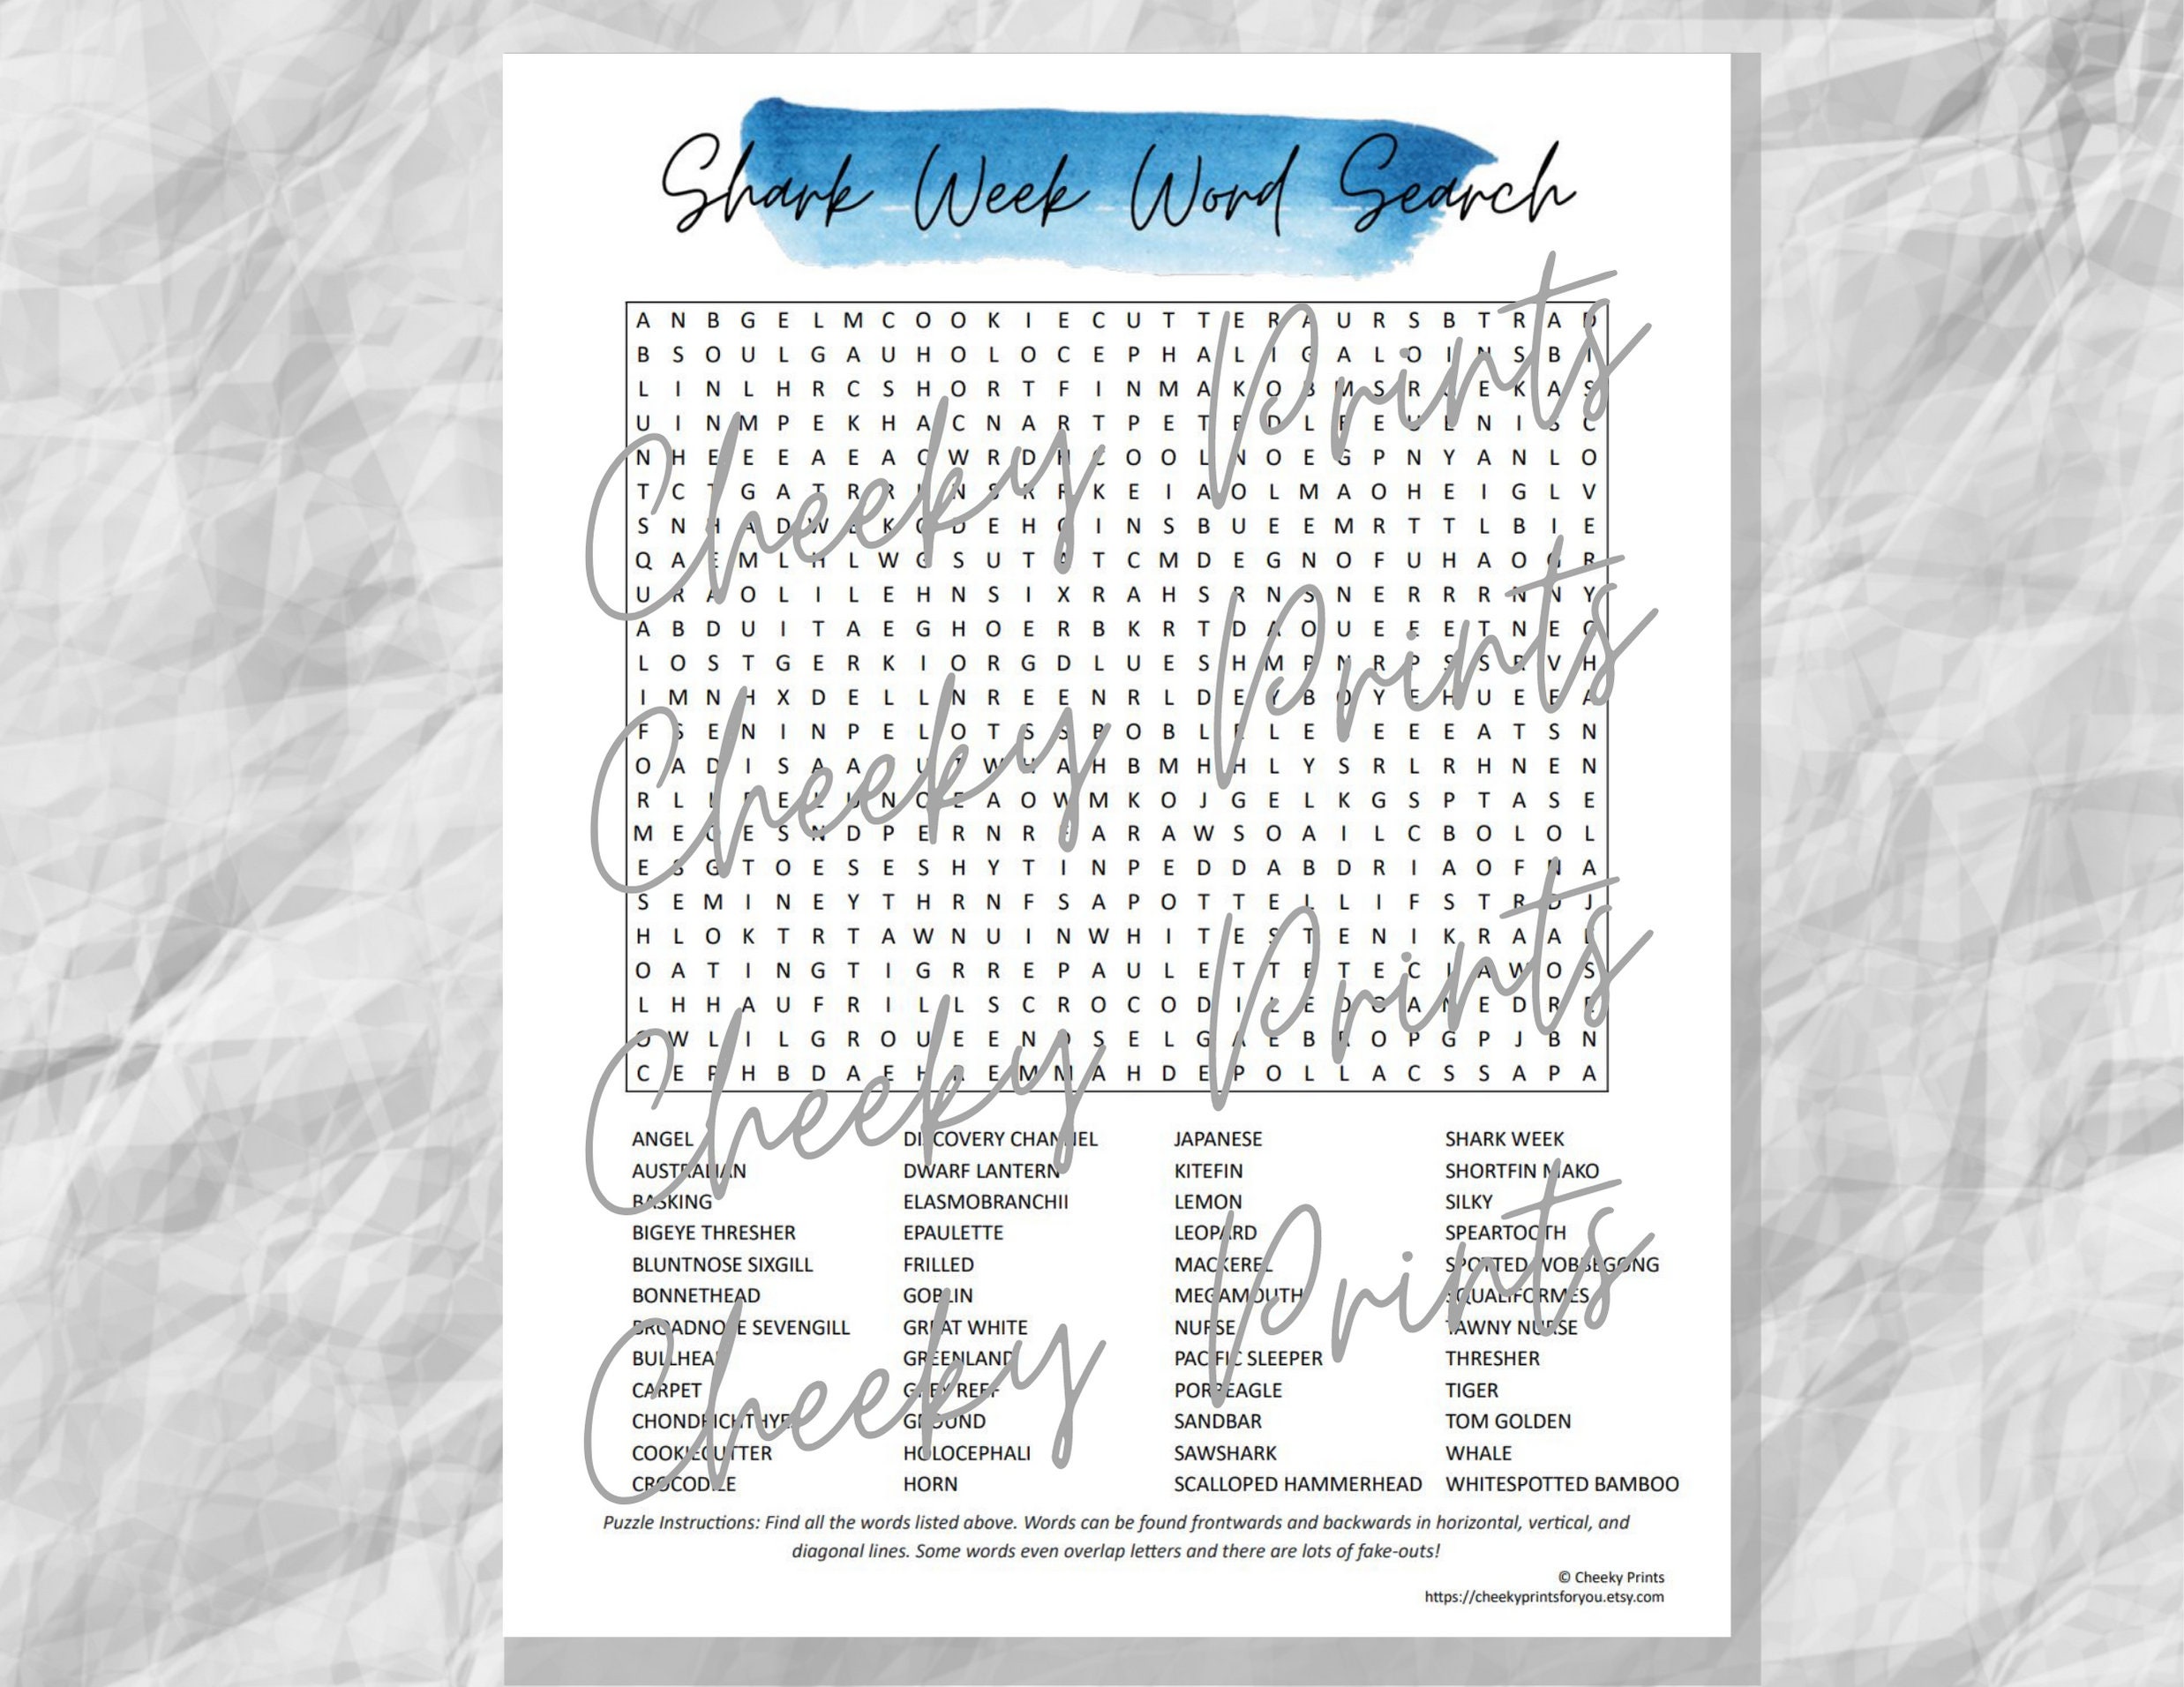 Shark Week Word Search
A N B G E L M C O O K I E C U T T E R A U R S B T R A D
B S O U L G A U H O L O C E P H A L I G A L O I N S B I
L I N L H R C S H O R T F I N M A K O B M S R E K A S
U I N M P E K H A C N A R T P E T D L E E N I S C
N H E E E A E A C W R D H C O O L N O E G P N Y A N L O
T C T G A T R R N S R F K E I A O L M A O H E I G L V
S N H A D W K D E H I N S B U E E M R T T L B I E
Q A E M L H L W G S U T A T C M D E G N O F U H A O G R
U R A O L I L E H N S I X R A H S R N S N E R R R N N Y
A B D U I T A E G H O E R B K R T D A O U E E E T N E C
L O S T G E R K I O R G D L U E S H M P N R P S S R V H
I M N H X D E L L N R E E N R L D E Y B O Y E H U E E A
F S E N I N P E L O T S S P O B L L E E E E A T S N
O A D I S A A U W A H B M H H L Y S R L R H N E N
R L E N O E A O W M K O J G E L K G S P T A S E
M E O E S N D P E R N R F A R A W S O A I L C B O L O L
E S G T O E S E S H Y T I N P E D D A B D R I A O F N A
S E M I N E Y T H R N F S A P O T T E L L I F S T R D J
H L O K T R T A W N U I N W H I T E S T E N I K R A A E
O A T I N G T I G R R E P A U L E T T E T E C A W O S
L H H A U F R I L L S C R O C O D I L E D A E D R E
O W L I L G R O U E E N S E L G A E B R O P G P J B N
C E P H B D A E H R E M M A H D E P O L L A C S S A P A
ANGEL
AUSTRALIAN
BASKING
BIGEYE THRESHER
BLUNTNOSE SIXGILL
BONNETHEAD
BROADNOSE SEVENGILL
BULLHEAD
CARPET
CHONDRICHTHYES
COOKIECUTTER
CROCODILE
DISCOVERY CHANNEL
DWARF LANTERN
ELASMOBRANCHII
EPAULETTE
FRILLED
GOBLIN
GREAT WHITE
GREENLAND
GREY REEF
GROUND
HOLOCEPHALI
HORN
JAPANESE
KITEFIN
LEMON
LEOPARD
MACKEREL
MEGAMOUTH
NURSE
PACIFIC SLEEPER
PORBEAGLE
SANDBAR
SAWSHARK
SCALLOPED HAMMERHEAD
SHARK WEEK
SHORTFIN MAKO
SILKY
SPEARTOOTH
SPOTTED WOBBEGONG
SQUALIFORMES
TAWNY NURSE
THRESHER
TIGER
TOM GOLDEN
WHALE
WHITESPOTTED BAMBOO
Puzzle Instructions: Find all the words listed above. Words can be found frontwards and backwards in horizontal, vertical, and
diagonal lines. Some words even overlap letters and there are lots of fake-outs!
© Cheeky Prints
https://cheekyprintsforyou.etsy.com
Cheeky Prints
Cheeky Prints
Cheeky Prints
Cheeky Prints